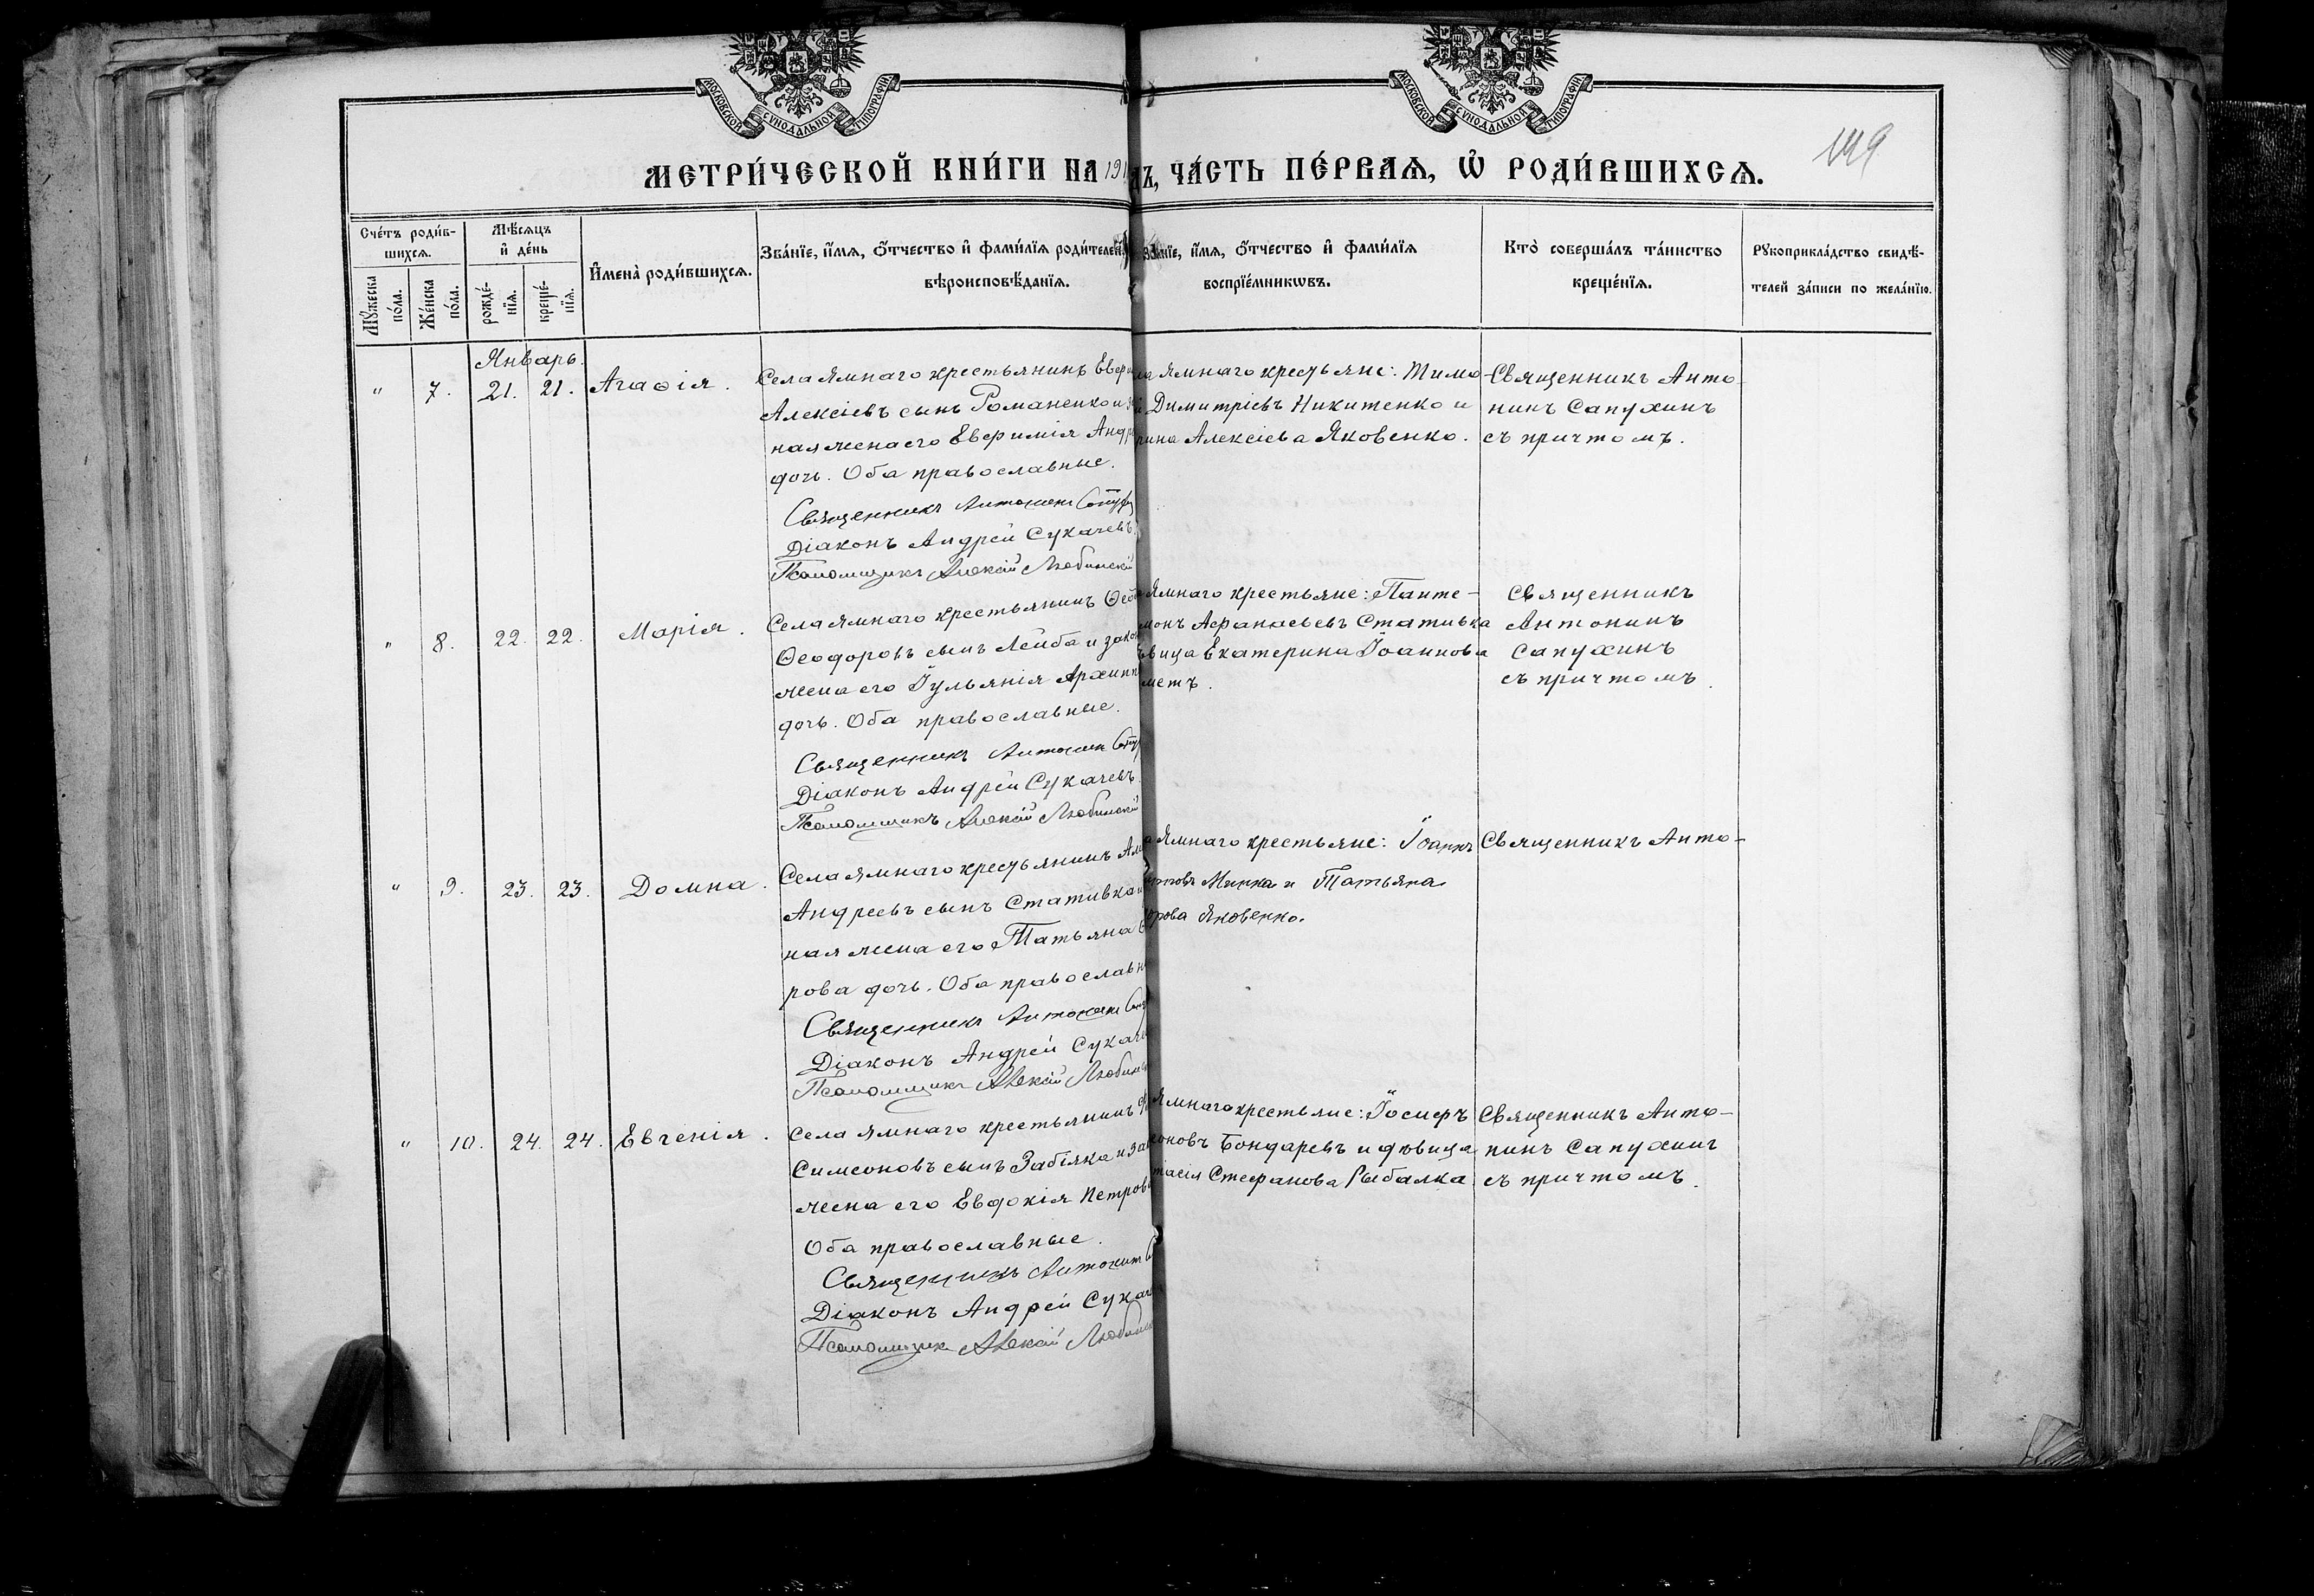 МОСКОВСКОЙ СѴНОДАЛЬНОЙ ТИПОГРАФІИ
МОСКОВСКОЙ СѴНОДАЛЬНОЙ ТИПОГРАФІИ
149
МЕТРИ́ЧЕСКОЙ КНИ́ГИ НА 191
ДЪ, ЧА́СТЬ ПЕ́РВАѦ, Ѡ҆ РОДИ́ВШИХСѦ.
Сче́тъ роди́в-
шихсѧ.
Мꙋ́жеска по́ла.
Же́нска по́ла.
Мѣ́сѧцъ
и҆ де́нь
рожде́-нїѧ.
креще́-нїѧ.
И҆мена̀ роди́вшихсѧ.
Зва́нїе, и҆́мѧ, ѻ҆́тчество и҆ фами́лїѧ родителей,
вѣроисповѣ́данїѧ.
Зва́нїе, и҆́мѧ, ѻ҆́тчество и҆ фами́лїѧ
воспрїе́мникѡвъ.
Кто̀ соверша́лъ та́инство
креще́нїѧ.
Рꙋкоприкла́дство свидѣ́-
телей за́писи по жела́нїю.
Январь.
" 7. 21. 21. Агаѳія.
Села Ямнаго крестьянинъ Евф
Алексіевъ сынъ Романенко и
ная жена его Евфимія Анд
дочь. Оба православные.
Священникъ Антонинъ
Діаконъ Андрей Сукачевъ
Псаломщикъ Алексій Любинскій
Ямнаго крестьяне: Тимо-
Димитріевъ Никитенко и
рина Алексіева Яковенко.
Священникъ Анто-
нинъ Сапухинъ
съ причтомъ.
" 8. 22. 22. Марія.
Села Ямнаго крестьянинъ Ѳео
Ѳеодоровъ сынъ Лейба и закон
жена его Іульянія Архипп
дочь. Оба православные.
Священникъ Антонинъ
Діаконъ Андрей Сукачевъ.
Псаломщикъ Алексій Любинскій
Ямнаго крестьяне: Панте-
монъ Афанасьевъ Стативка
вица Екатерина Іоаннова
метъ.
Священникъ
Антонинъ
Сапухинъ
съ причтомъ.
" 9. 23. 23. Домна.
Села Ямнаго крестьянинъ
Андреевъ сынъ Стативка и
ная жена его Татьяна
рова дочь. Оба православн
Священникъ Антонинъ
Діаконъ Андрей Сукаче
Псаломщикъ Алексій Любинск
Ямнаго крестьяне: Іоаннъ
Минка и Татьяна
орова Яковенко.
Священникъ Анто-
" 10. 24. 24. Евгенія.
Села Ямнаго крестьянинъ
Симеоновъ сынъ Забіяка и за
жена его Евдокія Петров
Оба православные.
Священникъ Антонинъ
Діаконъ Андрей Сукач
Псаломщикъ Алексій Любинск
Ямнаго крестьяне: Іосифъ
оновъ Бондаревъ и дѣвица
тасія Стефанова Рыбалка.
Священникъ Анто-
нинъ Сапухинъ
съ причтомъ.